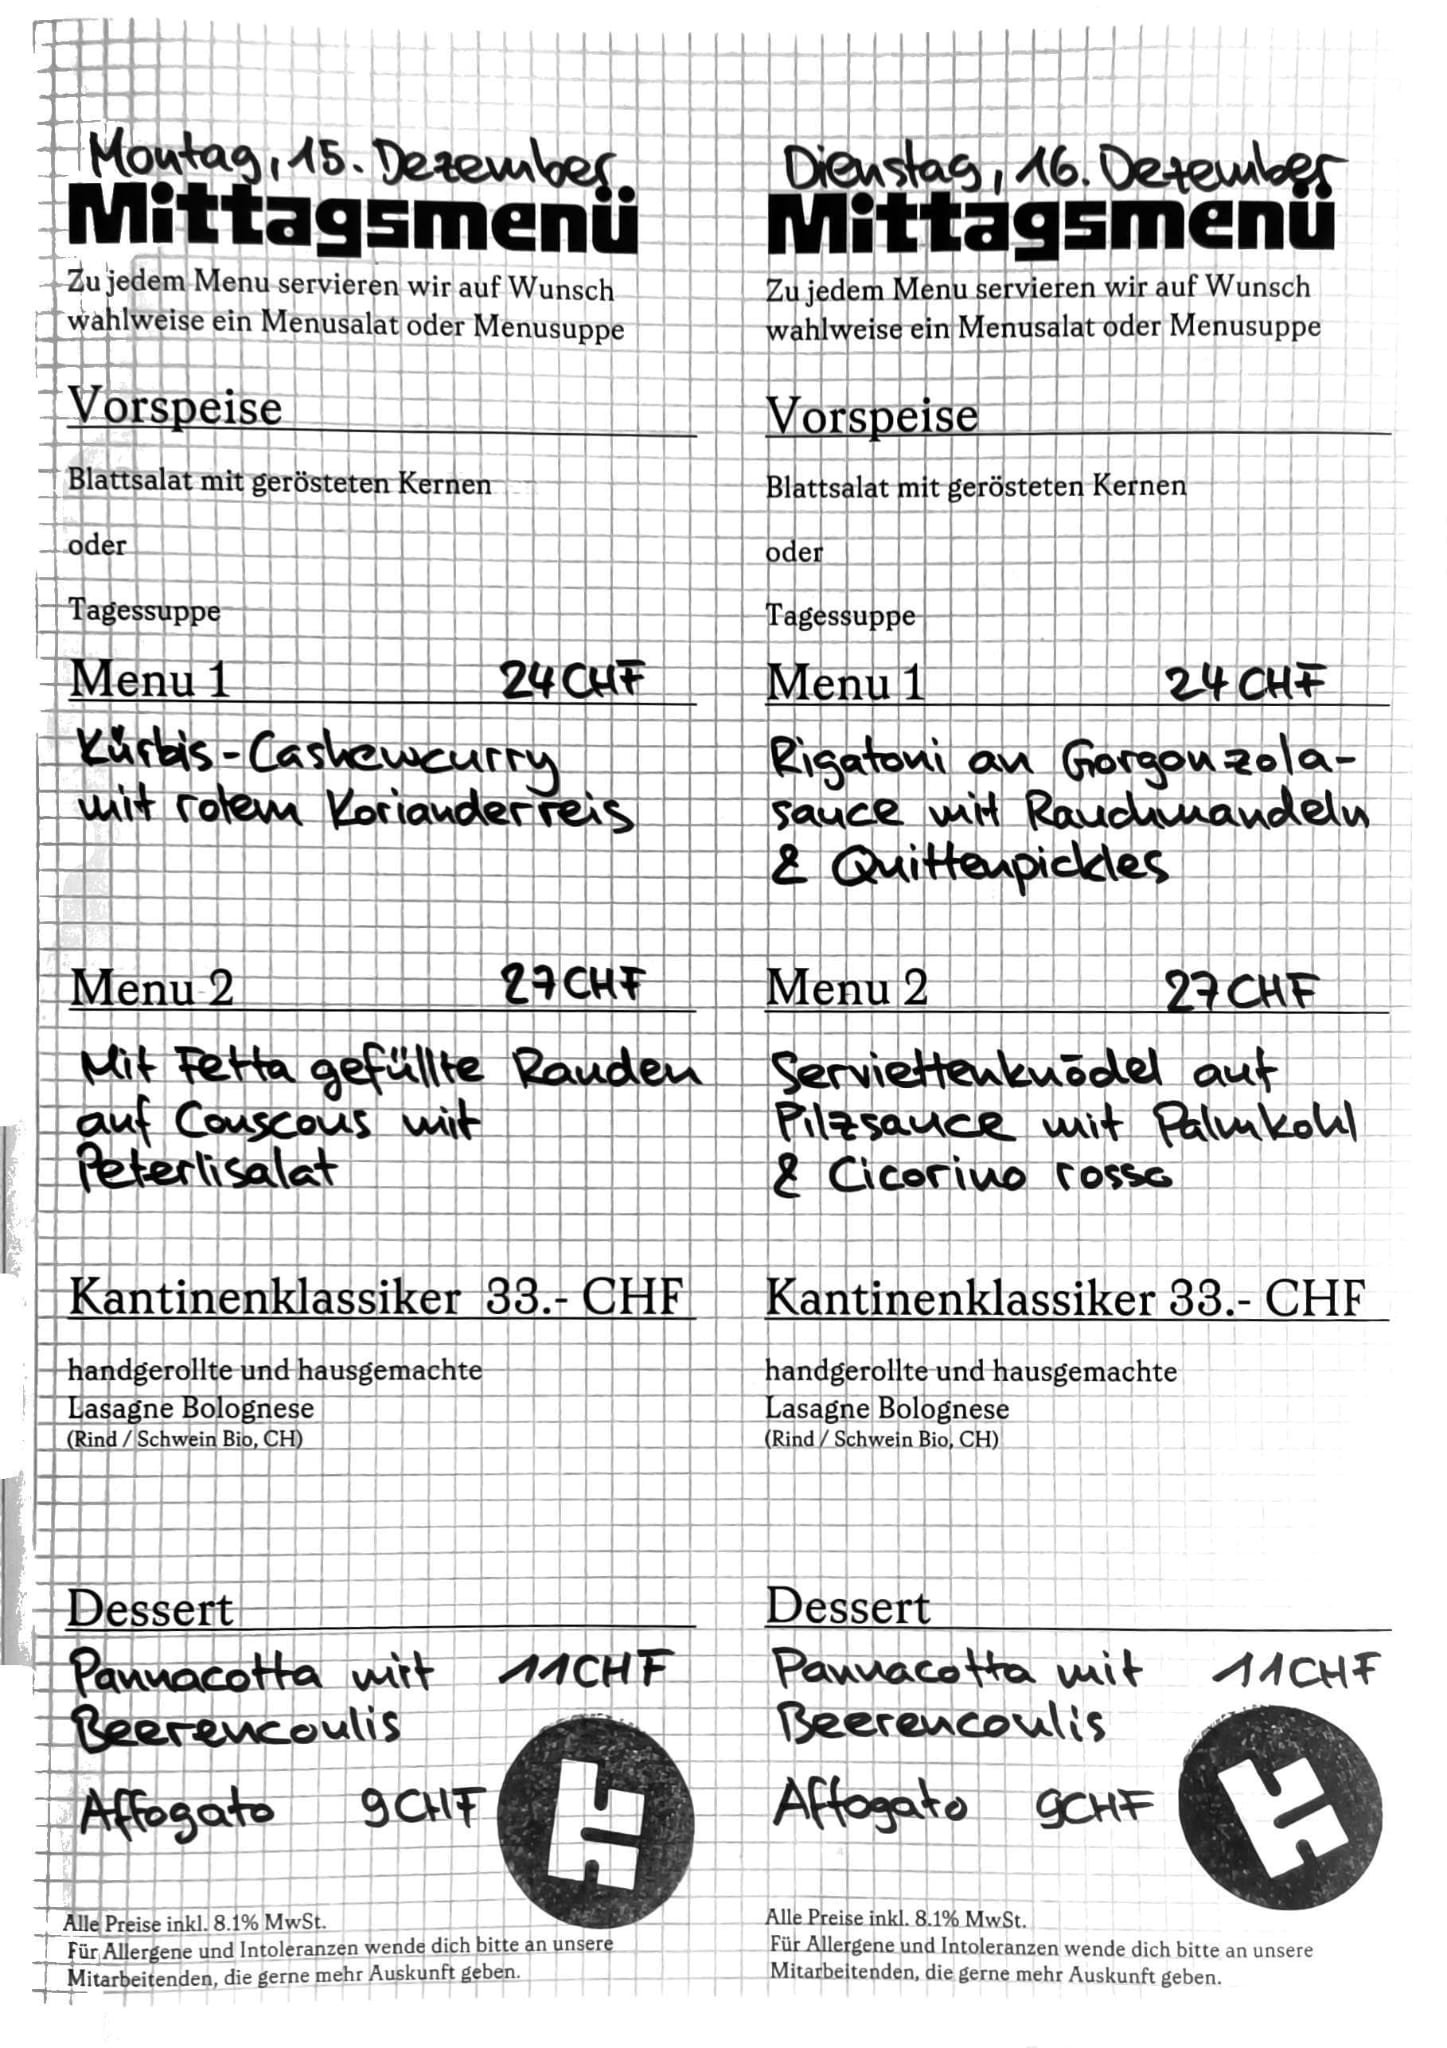 Montag, 15. Dezember
Mittagsmenü
Zu jedem Menu servieren wir auf Wunsch
wahlweise ein Menusalat oder Menusuppe
Vorspeise
Blattsalat mit gerösteten Kernen
oder
Tagessuppe
Menu 1 24 CHF
Kürbis-Cashewcurry
mit rotem Korianderreis
Menu 2 27 CHF
Mit Fetta gefüllte Randen
auf Couscous mit
Peterlisalat
Kantinenklassiker 33.- CHF
handgerollte und hausgemachte
Lasagne Bolognese
(Rind / Schwein Bio, CH)
Dessert
Pannacotta mit 11CHF
Beerencoulis
Affogato 9CHF
Alle Preise inkl. 8.1% MwSt.
Für Allergene und Intoleranzen wende dich bitte an unsere
Mitarbeitenden, die gerne mehr Auskunft geben.
Dienstag, 16. Dezember
Mittagsmenü
Zu jedem Menu servieren wir auf Wunsch
wahlweise ein Menusalat oder Menusuppe
Vorspeise
Blattsalat mit gerösteten Kernen
oder
Tagessuppe
Menu 1 24 CHF
Rigatoni an Gorgonzola-
sauce mit Rauchmandeln
& Quittenpickles
Menu 2 27 CHF
Serviettenknödel auf
Pilzsauce mit Palmkohl
& Cicorino rosso
Kantinenklassiker 33.- CHF
handgerollte und hausgemachte
Lasagne Bolognese
(Rind / Schwein Bio, CH)
Dessert
Pannacotta mit 11CHF
Beerencoulis
Affogato 9CHF
Alle Preise inkl. 8.1% MwSt.
Für Allergene und Intoleranzen wende dich bitte an unsere
Mitarbeitenden, die gerne mehr Auskunft geben.